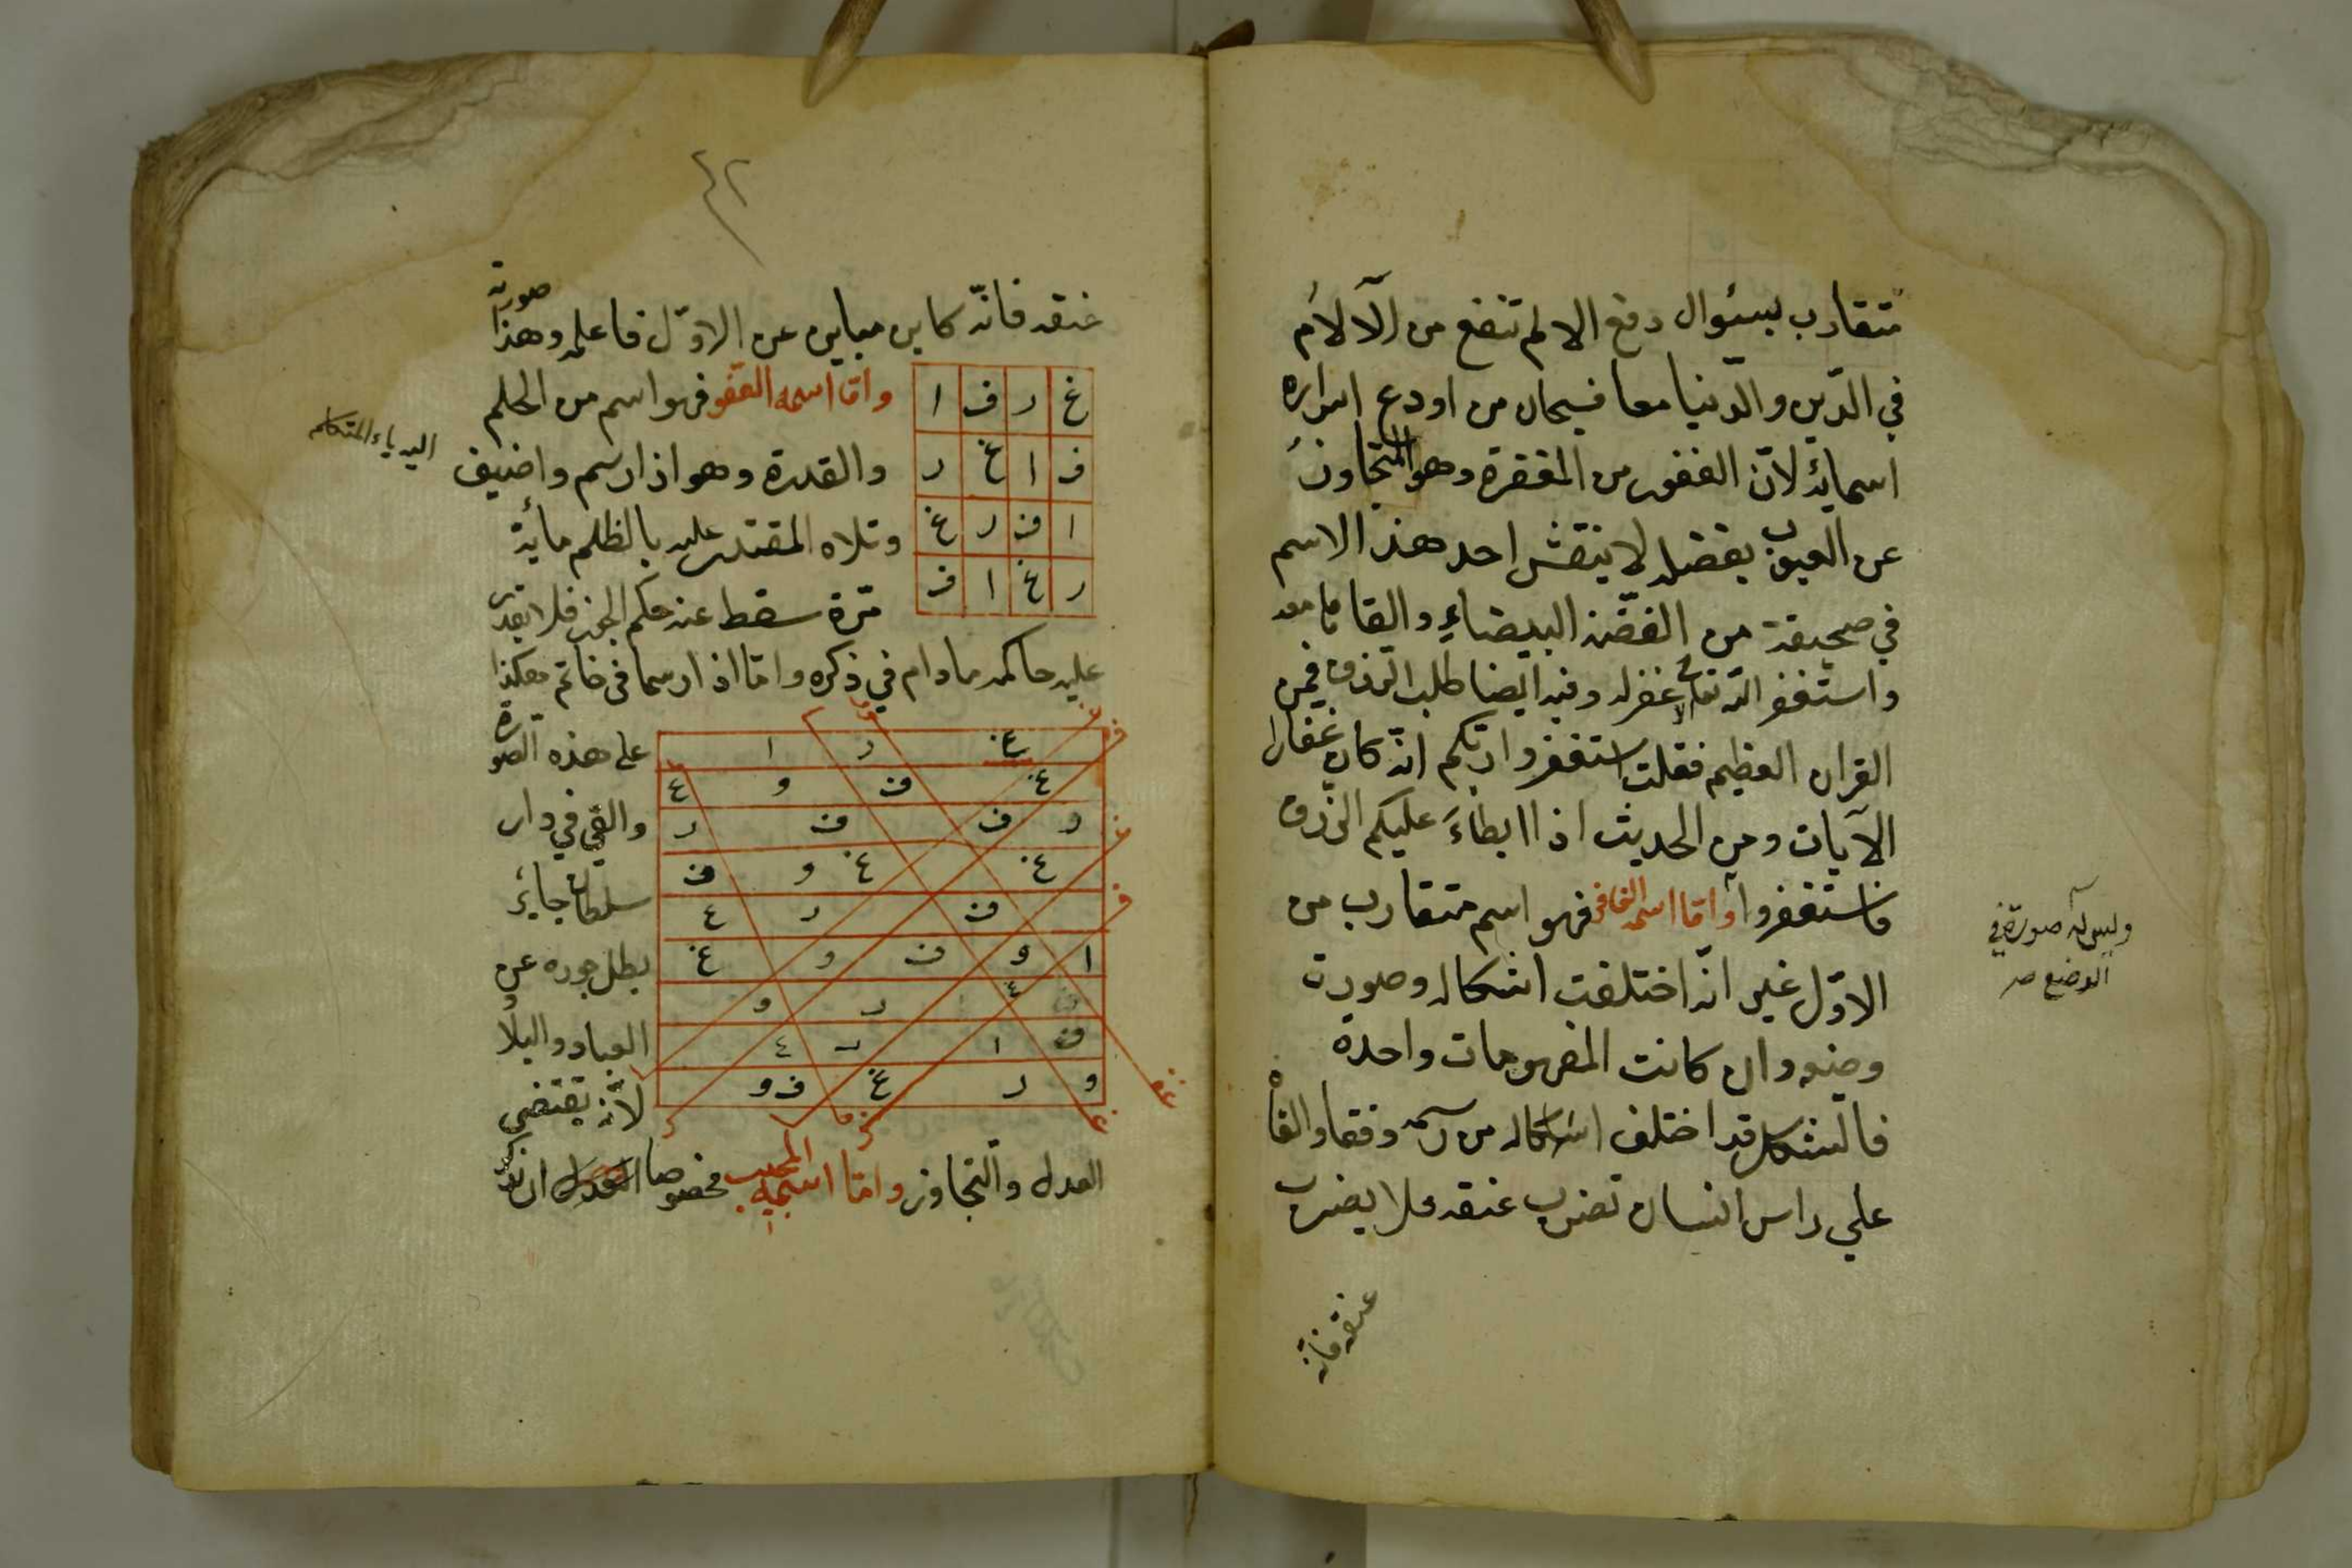 متقارب بسئوال دفع الالم تنفع من الآلام
في الدّين والدّنيا معا فسبحان من اودع اسراره
اسمائه لانّ الغفور من المغفرة وهو المتجاوز
عن العيوب بفضله لا ينقش احد هذا الاسم
في صحيفة من الفضّة البيضاء والقاها معه
واستغفر الله تعالى الا غفر له وفيه ايضا طلب الرزق فمن
القران العظيم فقلت استغفروا ربّكم انّه كان غفارا
الآيات ومن الحديث اذا ابطاء عليكم الرّزق
فاستغفروا وامّا اسمه الغافر فهو اسم متقارب من
الاوّل غير انّه اختلفت اشكاله وصورة
وضعه وان كانت المفهومات واحدة
فالشكل قد اختلف اشكاله من اسمه وفقها والقاه
علي راس انسان تضرب عنقه فلا يضرب
عنقه فانّه
وليس له صورة في
الوضع صـ
٤٢
عنقه فانّه كاين مباين عن الاوّل فاعلمه وهذا صورته
غ ر ف ا
ف ا غ ر
ا ف ر غ
ر غ ا ف
وامّا اسمه العفو فهو اسم من الحلم
والقدرة وهو اذا رسم واضيف
اليه ياء المتكلم
وتلاه المقتدر عليه بالظلم مأية
مّرة سقط عنه حكم الجور فلا يقدر
عليه حاكمه ما دام في ذكره وامّا اذا رسما في خاتم هكذا
على هذه الصورة
والقي في دار
سلطان جاير
بطل جوره عن
العباد والبلاد
لانّه يقتضي
غ ر ا
غ ف و ع
ر ف ف ر
غ غ و ف
ف ر ع
ا و ف و غ
ر و
ف ا ر ع
و ر غ ف و
العدل والتجاوز وامّا اسمه المجيب مخصوصا ان تذكر